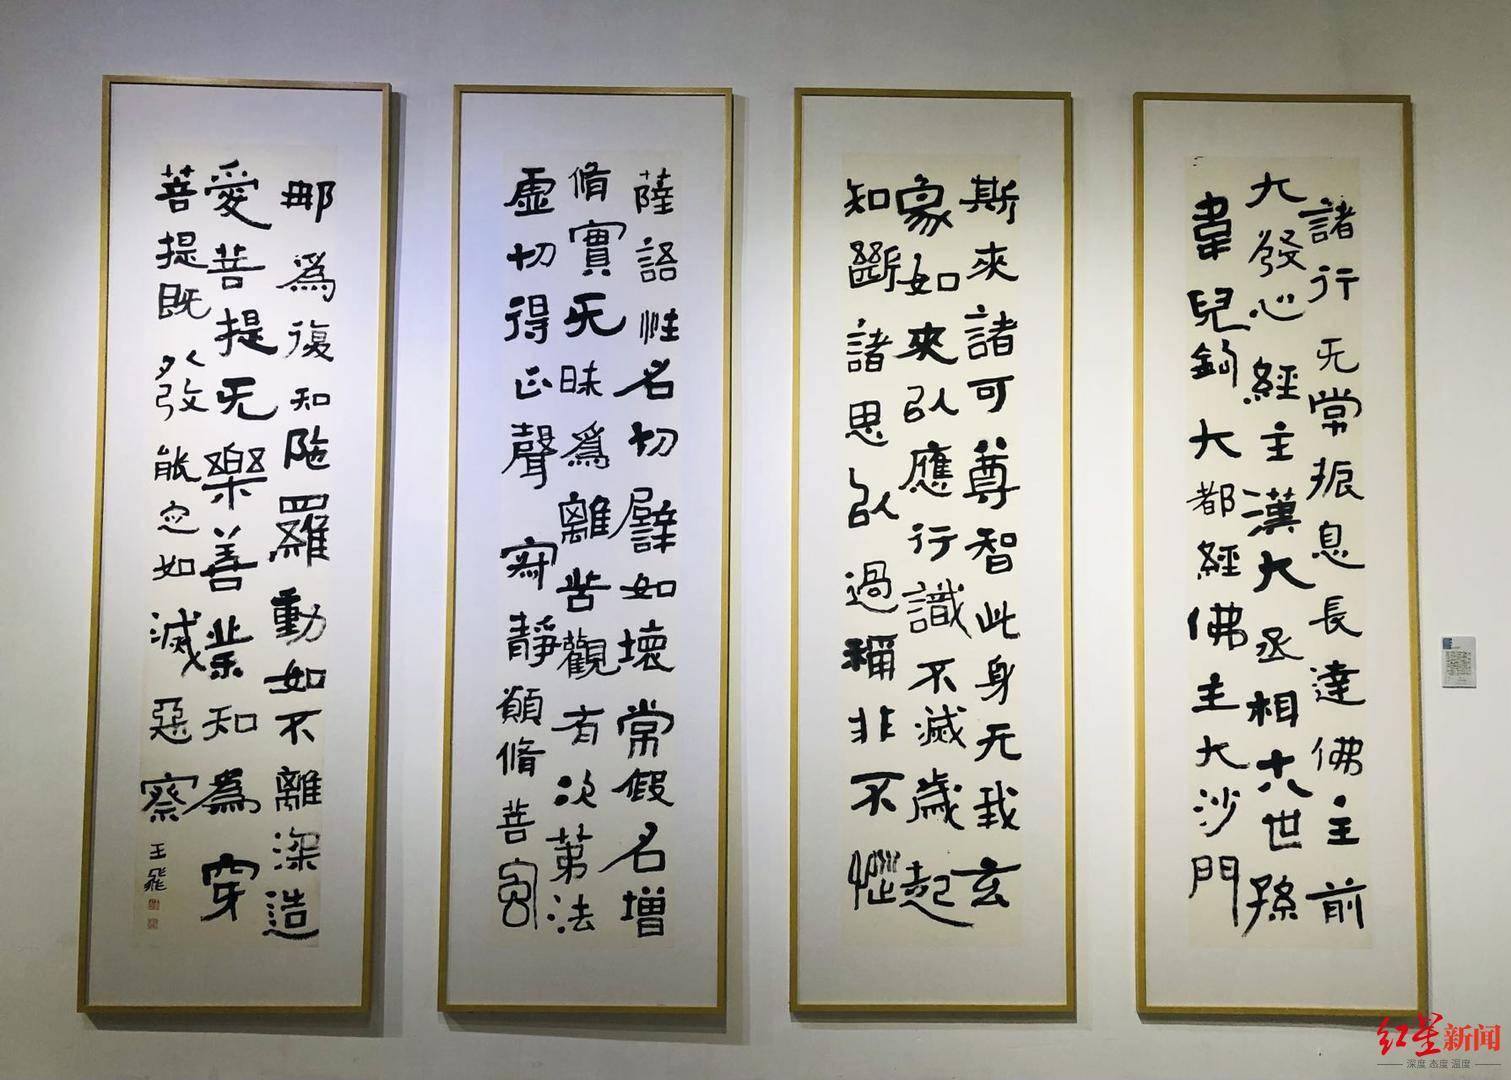 諸行无常振息長達佛主前
大發心經主漢大丞相十八世孫
韋兒鈎大都經佛主大沙門
斯夾諸可尊智此身无我玄
象如夾以應行識不滅歲起
知斷諸思以過稱非不
薩語性名切譬如壞常假名增
脩實无昧為離苦觀有次第法
虛切得正聲寂靜願脩菩
耶為復知陁羅動如不離深造
愛菩提无樂善業知為穿
菩提既發能定如滅惡察
王飛
红星新闻
深度 态度 温度